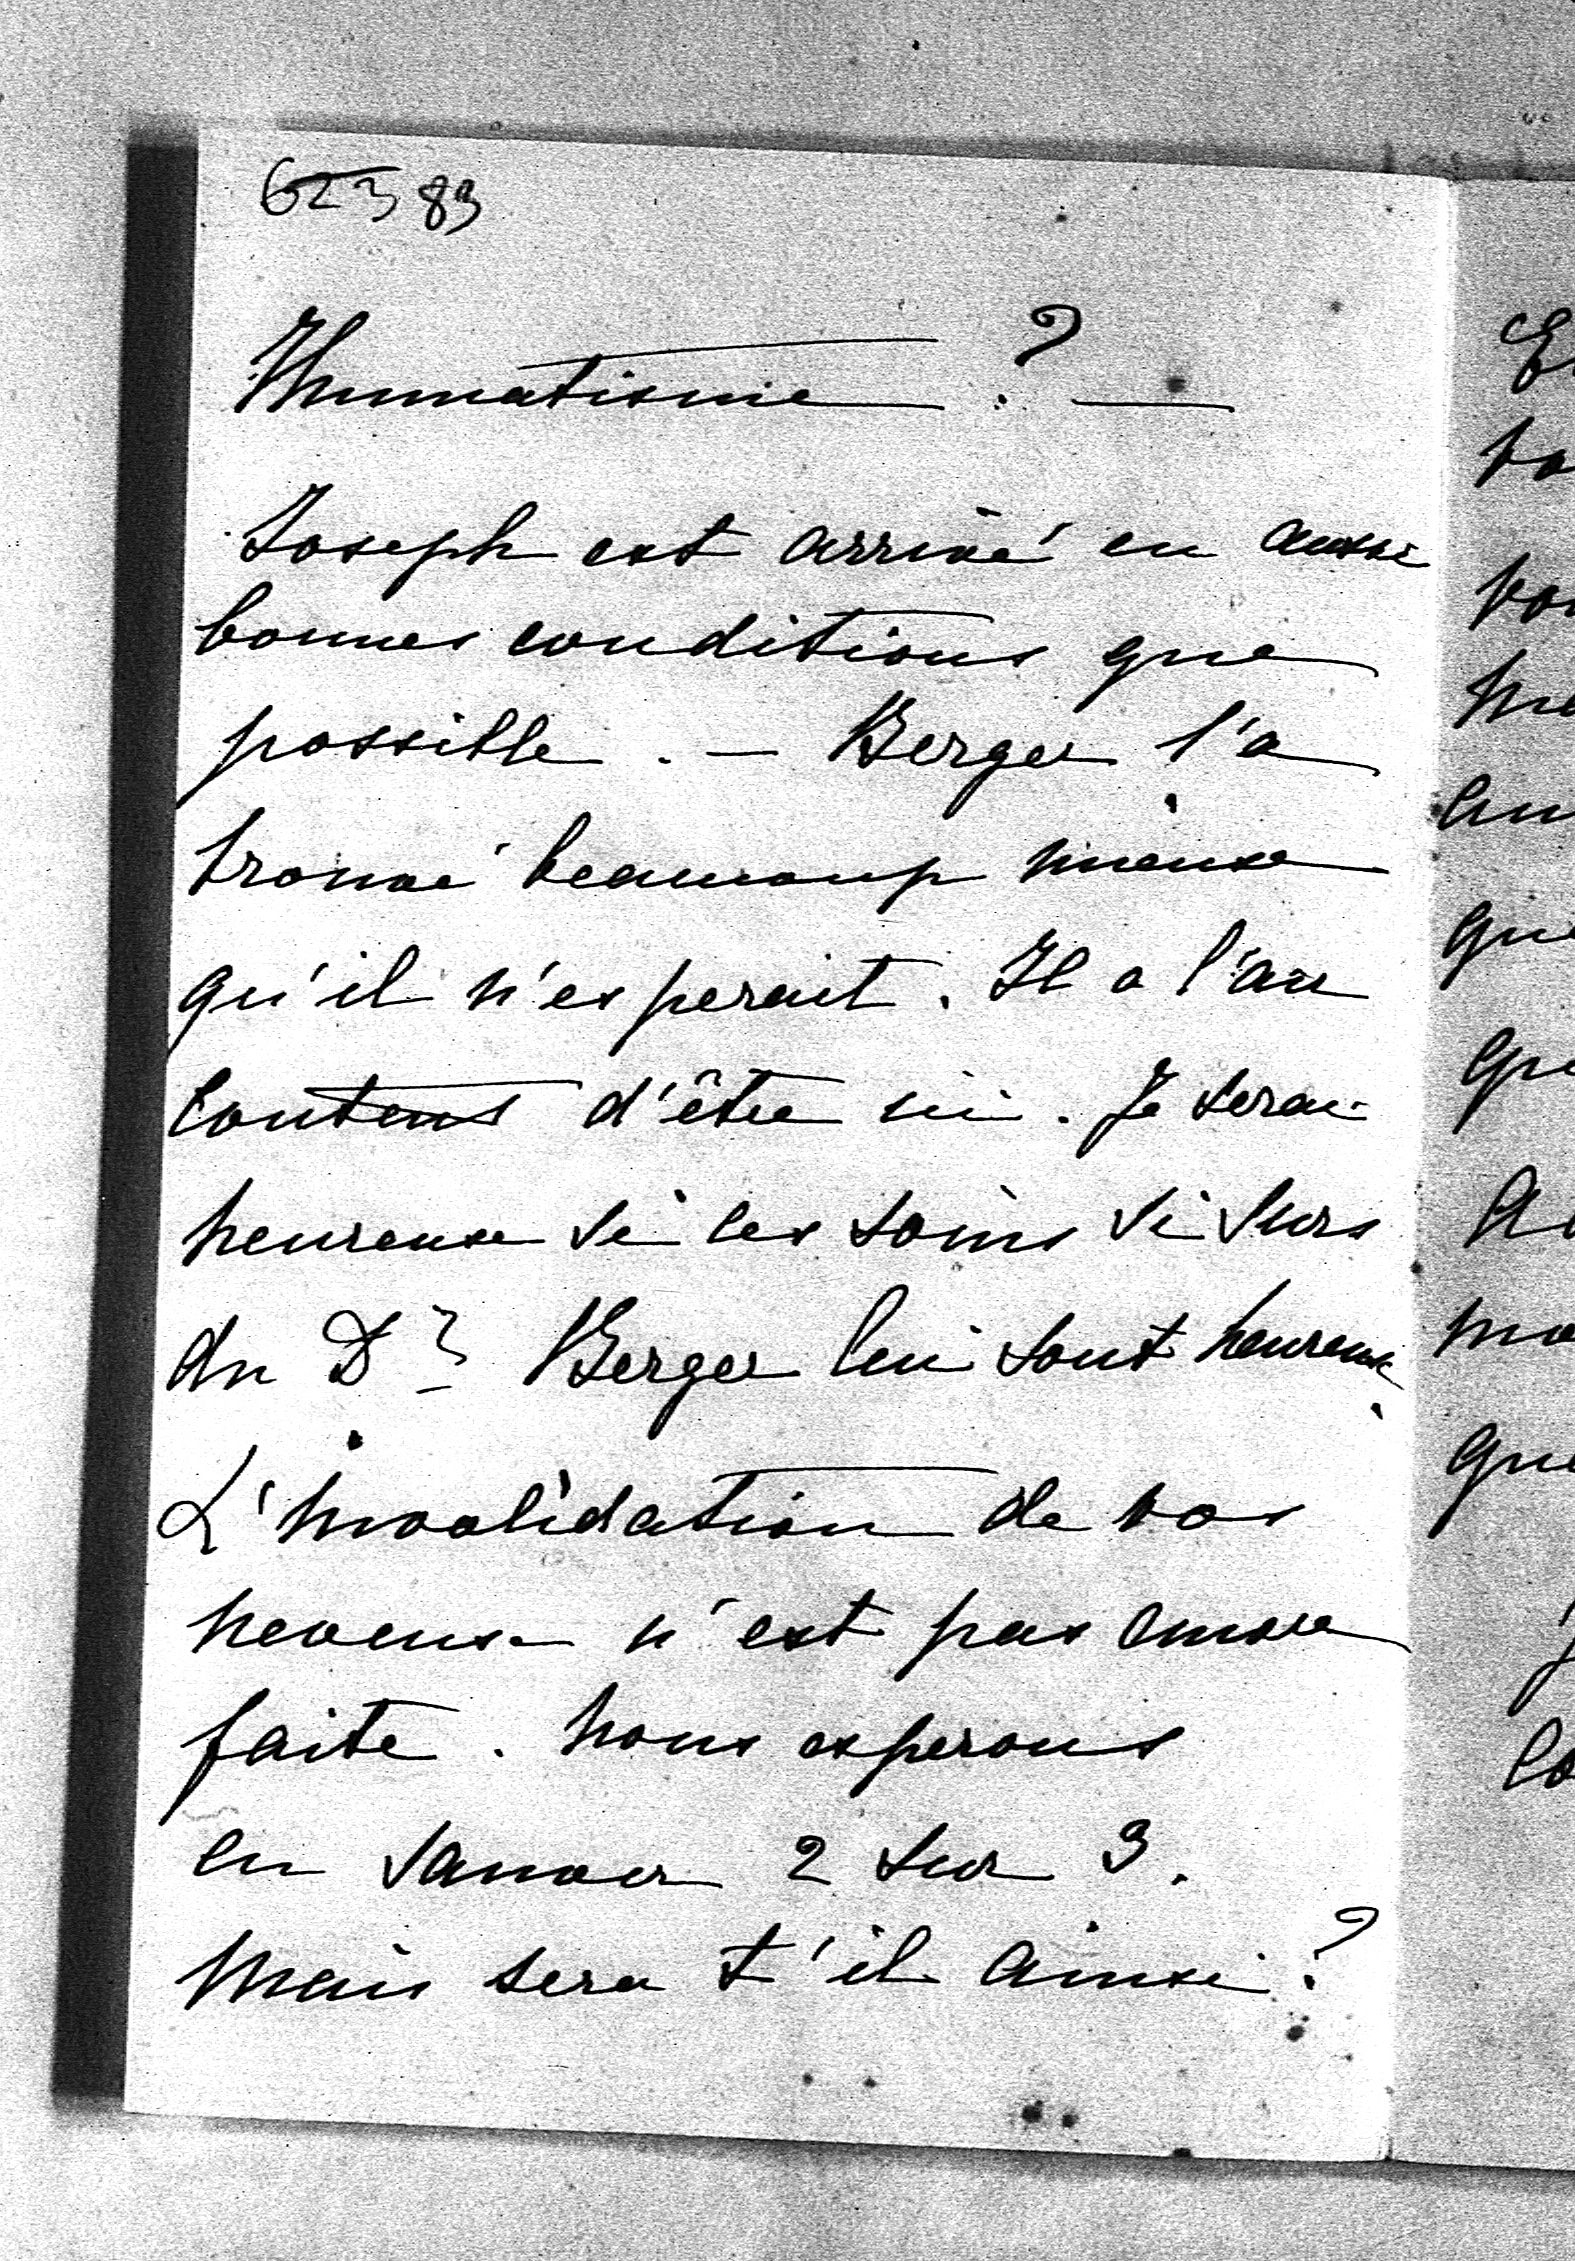 62383
Rhumatisme ? —
Joseph est arrivé en aussi
bonnes conditions que
possible. — Berger l'a
trouvé beaucoup mieux
qu'il n'esperait. Il a l'air
content d'être ici. Je serai
heureuse si les soins si surs
du Dr Berger lui sont heureux
L'invalidation de vos
neveux n'est pas encore
faite. Nous esperons
en sauver 2 sur 3.
Mais sera t'il ainsi ?
que